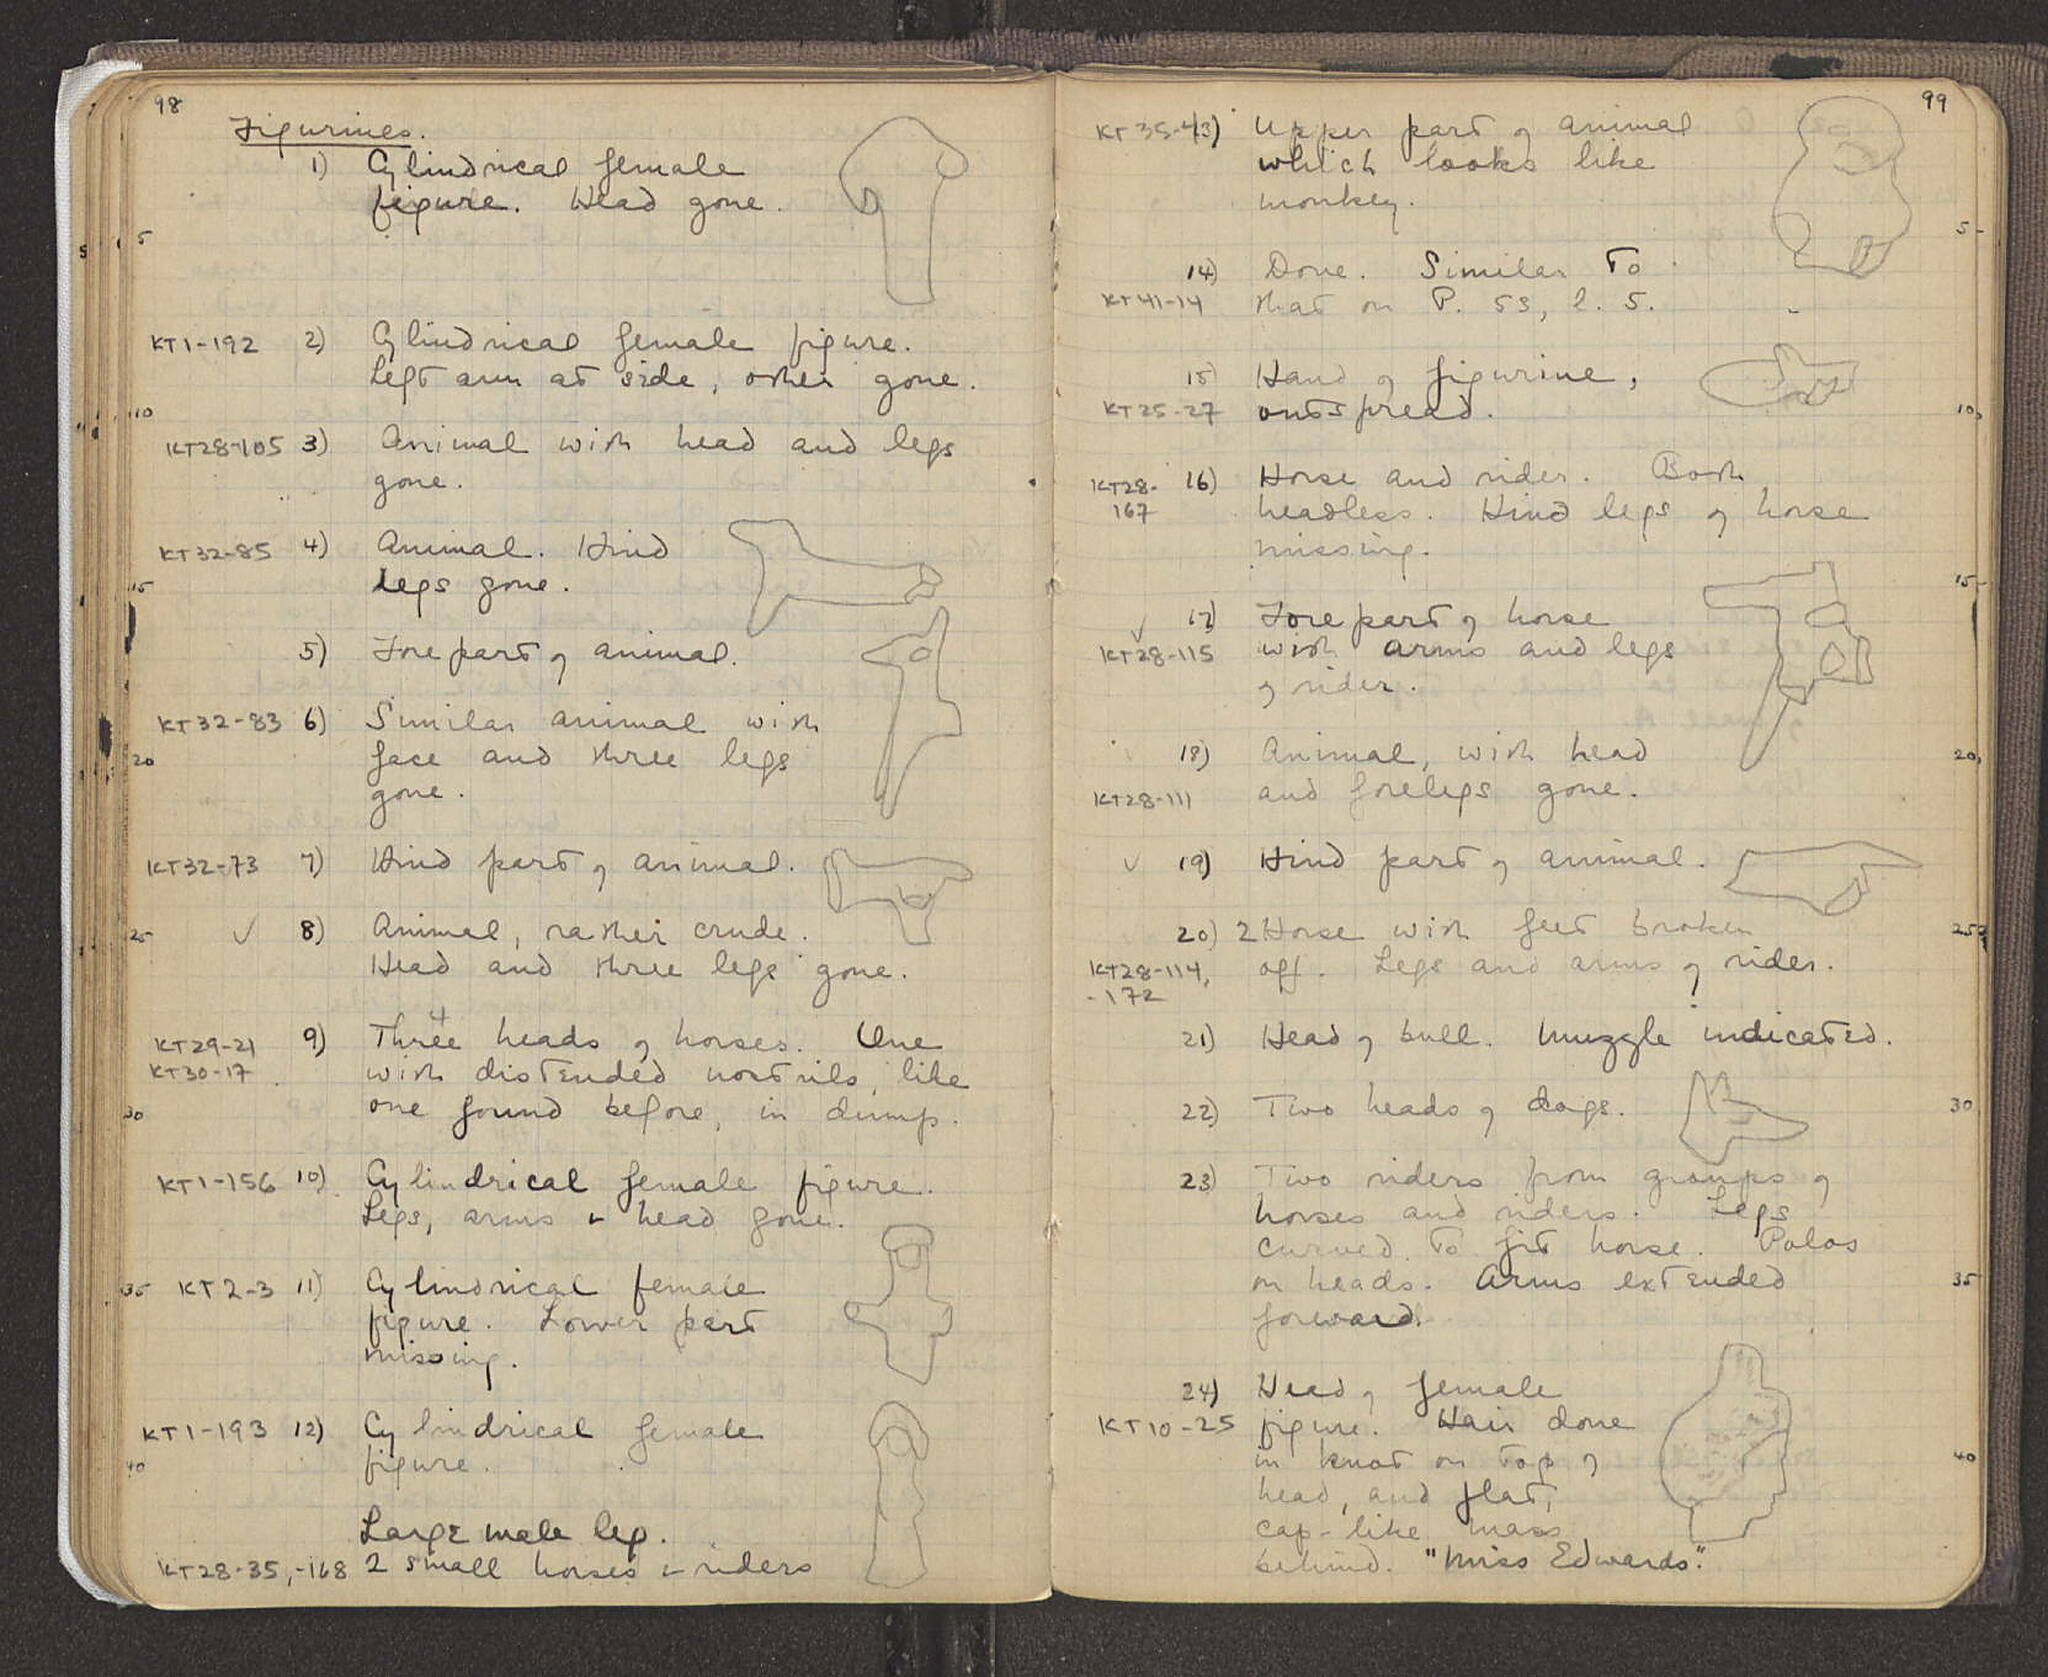 98
Figurines.
1) Cylindrical female
figure. Head gone.
5
KT1-192 2) Cylindrical female figure.
Left arm at side, other gone.
10
KT28-105 3) Animal with head and legs
gone.
KT32-85 4) Animal. Hind
15 legs gone.
5) Fore part of animal.
KT32-83 6) Similar animal with
20 face and three legs
gone.
KT32-73 7) Hind part of animal.
25 ✓ 8) Animal, rather crude.
Head and three legs gone.
4
KT29-21 9) Three heads of horses. One
KT30-17 with distended nostrils, like
30 one found before, in dump.
KT1-156 10) Cylindrical female figure.
Legs, arms & head gone.
35 KT2-3 11) Cylindrical female
figure. Lower part
missing.
KT1-193 12) Cylindrical female
40 figure.
Large male leg.
KT28-35, -168 2 small horses & riders
99
KT35-4 13) Upper part of animal
which looks like
monkey.
5
14) Dove. Similar to
KT41-14 that on P. 53, l. 5.
15) Hand of figurine,
KT25-27 outspread. 10
KT28- 16) Horse and rider. Both
167 headless. Hind legs of horse
missing.
15
✓ 17) Fore part of horse
KT28-115 with arms and legs
of rider.
✓ 18) Animal, with head 20
KT28-111 and forelegs gone.
✓ 19) Hind part of animal.
20) 2 Horse with feet broken 25
KT28-114, off. Legs and arms of rider.
-172
21) Head of bull. Muzzle indicated.
22) Two heads of dogs. 30
23) Two riders from groups of
horses and riders. Legs
curved to fit horse. Polos
on heads. Arms extended 35
forward.
24) Head of female
KT10-25 figure. Hair done
in knot on top of 40
head, and flat,
cap-like mass
behind. "Miss Edwards".